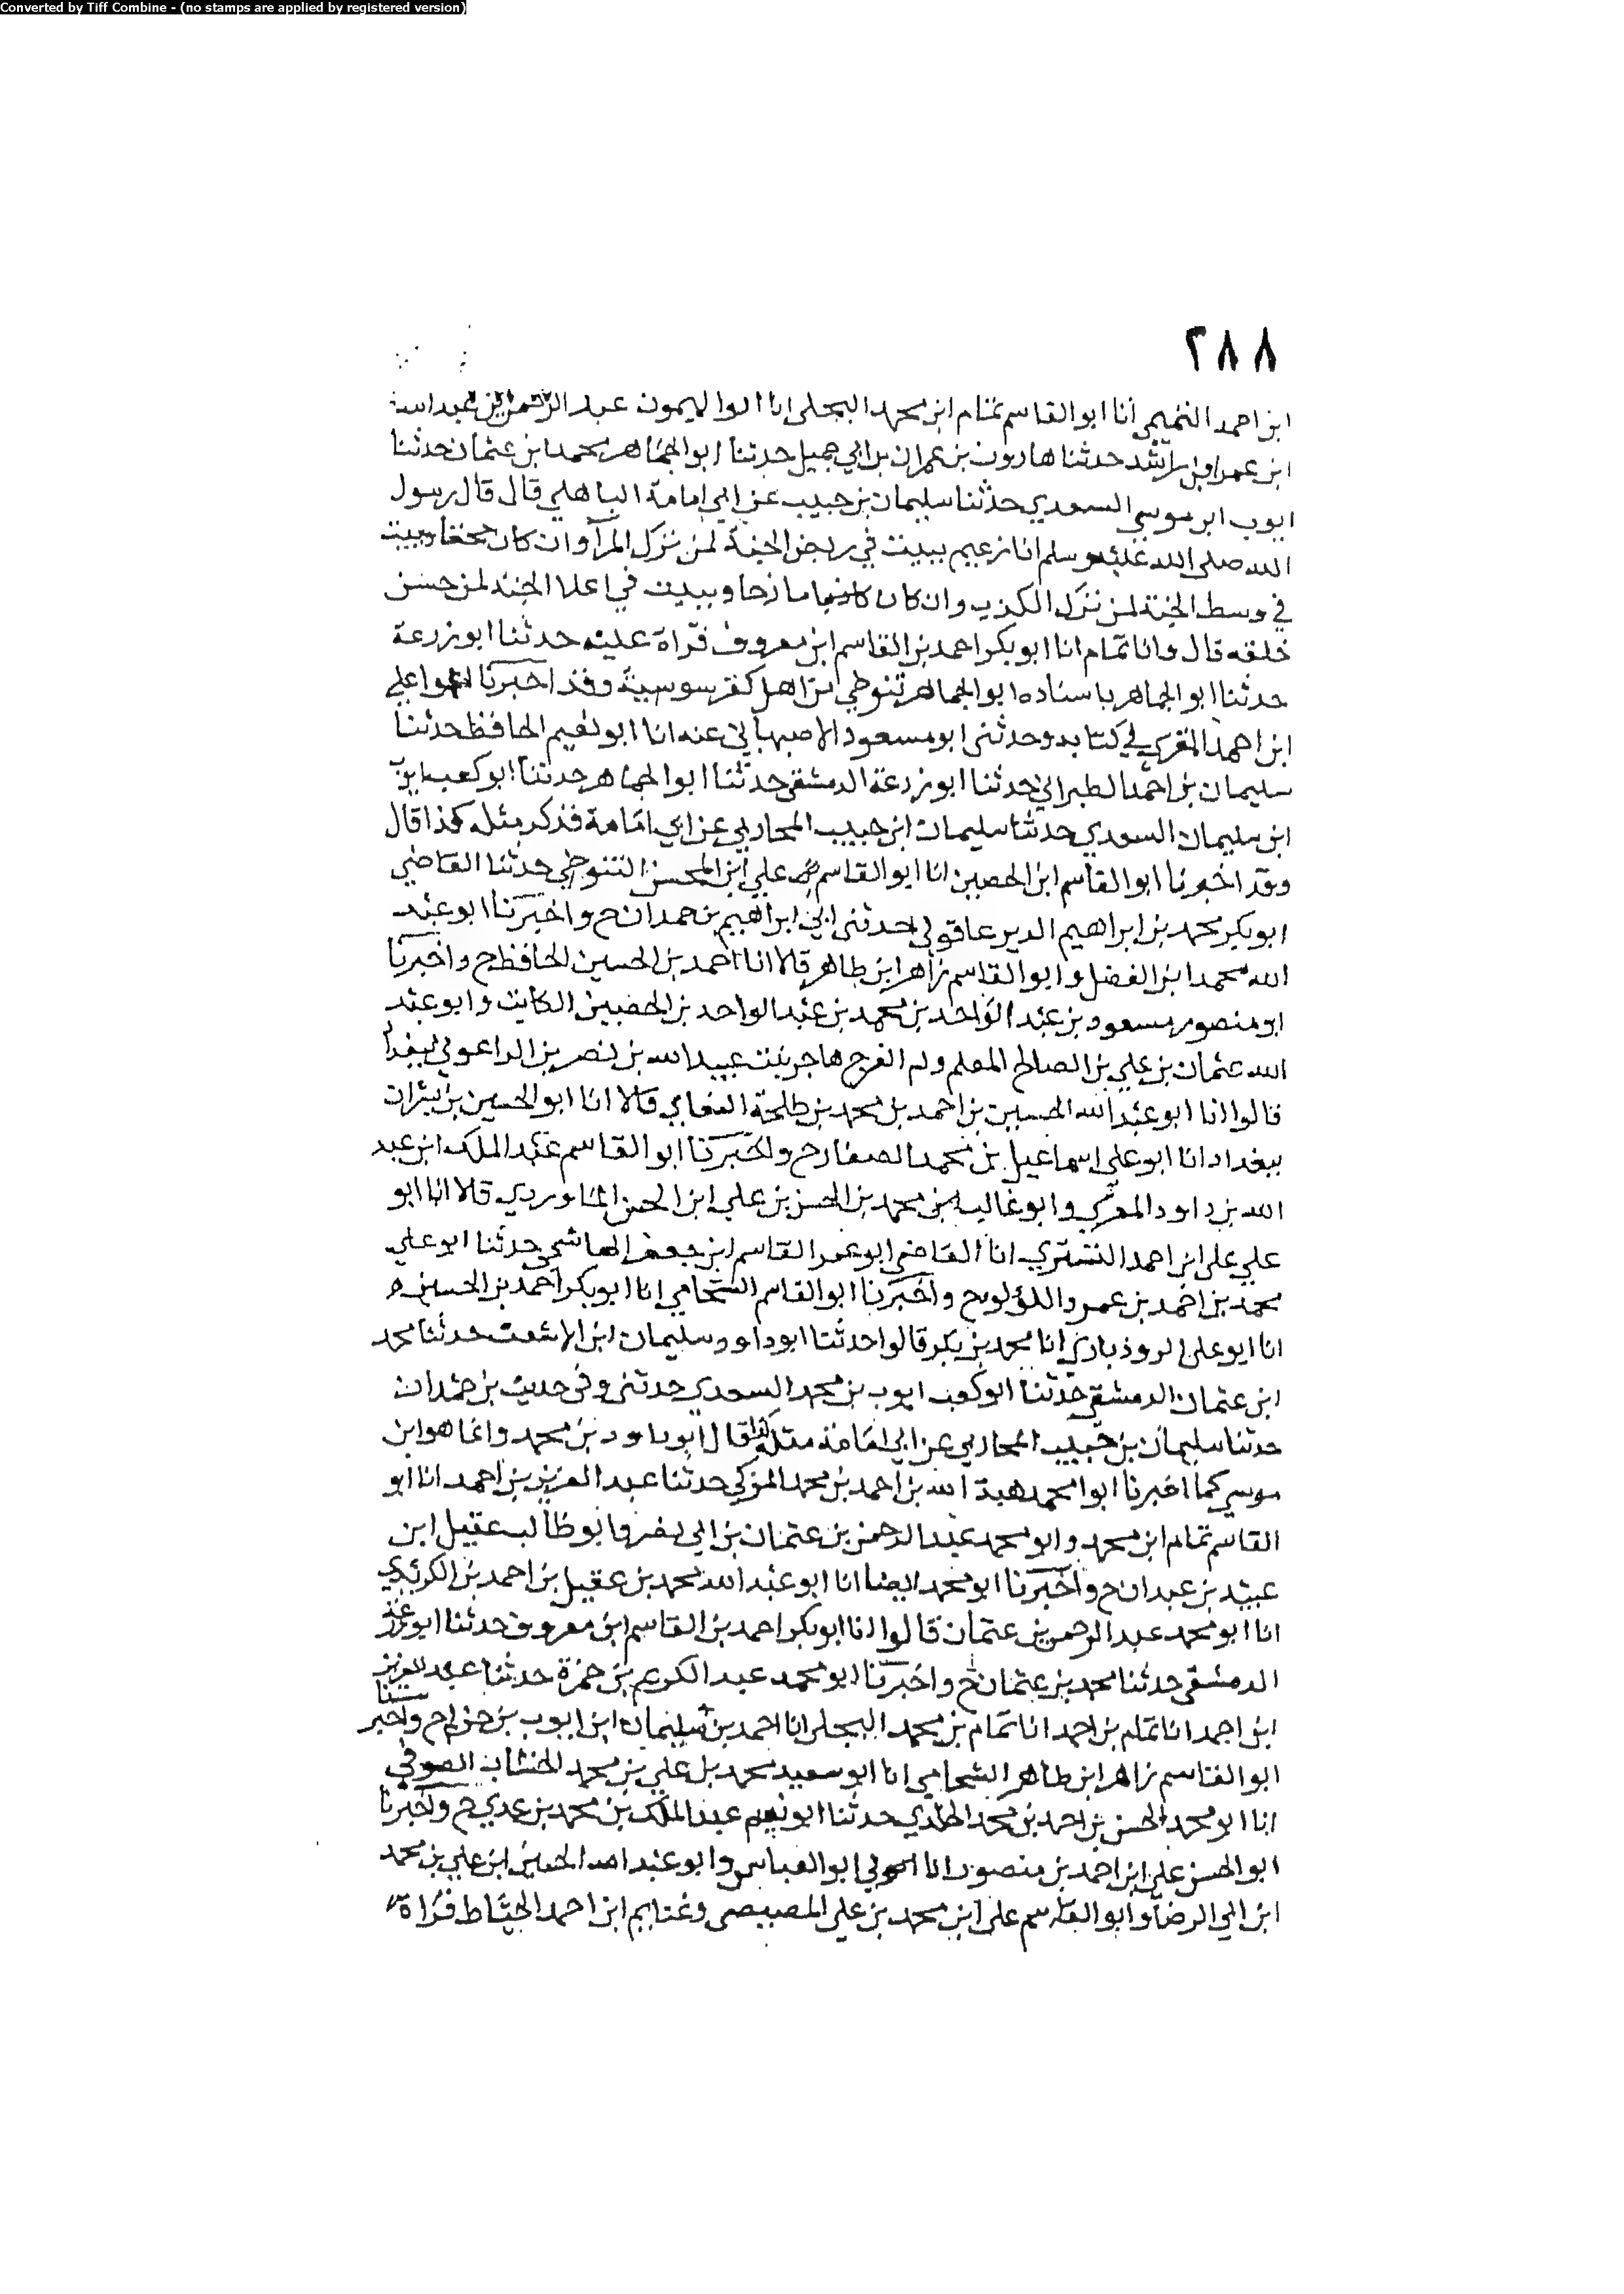 Converted by Tiff Combine - (no stamps are applied by registered version)
٢٨٨
ابن احمد التميمي أنا ابو القاسم تمام ابن محمد البجلي انا ابوا الميمون عبد الرحمن بن عبد الله
ابن عمر ابن راشد حدثنا هارون بن عمران بن ابي جميل حدثنا ابو الجماهر محمد ابن عثمان حدثنا
ايوب ابن موسي السعدي حدثنا سليمان بن حبيب عن ابي امامة الباهلي قال قال رسول
الله صلى الله عليه وسلم انا زعيم ببيت في ربض الجنة لمن ترك المرآ وان كان محقا وببيت
في وسط الجنة لمن ترك الكذب وان كان مازحا وببيت في اعلا الجنة لمن حسن
خلقه قال وانا تمام انا ابو بكر احمد بن القاسم ابن معروف قرأة عليه حدثنا ابو زرعة
حدثنا ابو الجماهر باسناده ابو الجماهر تنوخي من اهل كفر سوسية وقد اخبرنا ابوا علي
ابن احمد المقري في كتابه وحدثني ابو مسعود الاصبهاني عنه انا ابو نعيم الحافظ حدثنا
سليمان بن احمد الطبراني حدثنا ابو زرعة الدمشقي حدثنا ابوا الجماهر حدثنا ابو كعب ايوب
ابن سليمان السعدي حدثنا سليمان ابن حبيب المحاربي عن ابي امامة فذكر مثله كذا قال
وقد اخبرنا ابو القاسم ابن الحصين انا ابو القاسم علي ابن المحسن التنوخي حدثنا القاضي
ابو بكر محمد بن ابراهيم الدير عاقولي حدثني ابي ابراهيم بن حمدان ح واخبرنا ابو عبد
الله محمد ابن الفضل وابو القاسم زاهر ابن طاهر قالا انا احمد بن الحسين الحافظ ح واخبرنا
ابو منصور مسعود بن عبد الواحد بن محمد بن عبد الواحد بن الحصين الكاتب وابو عبد
الله عثمان بن علي بن الصالح المعلم وام الفرج هاجر بنت عبيد الله بن نصر بن الزاعوني ببغدا
قالوا انا ابو عبد الله الحسين بن احمد بن محمد بن طلحة النعالي قالا انا ابو الحسين بن بشران
ببغداد انا ابو علي اسماعيل بن محمد الصفار ح واخبرنا ابو القاسم عبد الملك ابن عبد
الله بن داود المغربي وابو غالب محمد بن الحسن بن علي ابن الحسن الماوردي قالا انا ابو
علي علي ابن احمد التستري انا القاضي ابو عمر القاسم ابن جعفر الهاشمي حدثنا ابو علي
محمد بن احمد بن عمرو اللؤلوي ح واخبرنا ابو القاسم الشحامي انا ابو بكر احمد بن الحسين
انا ابو علي الروذباري انا محمد بن بكر قالوا حدثنا ابو داود سليمان ابن الاشعث حدثنا محمد
ابن عثمان الدمشقي حدثنا ابو كعب ايوب بن محمد السعدي حدثني وفي حديث بن حمدان
حدثنا سليمان بن حبيب المحاربي عن ابي امامة مثله كذا قال ابو داود بن محمد وانما هو ابن
موسي كما اخبرنا ابوا محمد هبة الله بن احمد بن محمد المزكي حدثنا عبد العزيز بن احمد انا ابو
القاسم تمام ابن محمد وابو محمد عبد الرحمن بن عثمان بن ابي نصر وابو طالب عقيل ابن
عبيد بن عبدان ح واخبرنا ابو محمد ايضا انا ابو عبد الله محمد بن عقيل بن احمد بن الكريدي
انا ابو محمد عبد الرحمن بن عثمان قالوا انا ابو بكر احمد بن القاسم ابن معروف حدثنا ابو زرعة
الدمشقي حدثنا محمد بن عثمان ح واخبرنا ابو محمد عبد الكريم بن حمزة حدثنا عبد العزيز
ابن احمد انا تمام بن احمد انا تمام بن محمد البجلي انا احمد بن سليمان ابن ايوب بن حزام ح واخبرنا
ابو القاسم زاهر ابن طاهر الشحامي انا ابو سعيد محمد بن علي بن محمد الخشاب الصوفي
انا ابو محمد الحسن بن احمد بن محمد المخلدي حدثنا ابو نعيم عبد الملك بن محمد بن عدي ح واخبرنا
ابو الحسن علي ابن احمد بن منصور انا ابي ابو العباس وابو عبد الله الحسين ابن علي بن محمد
ابن ابي الرضا وابو القاسم علي ابن محمد بن علي المصيصي وغنايم ابن احمد الخياط قرأة